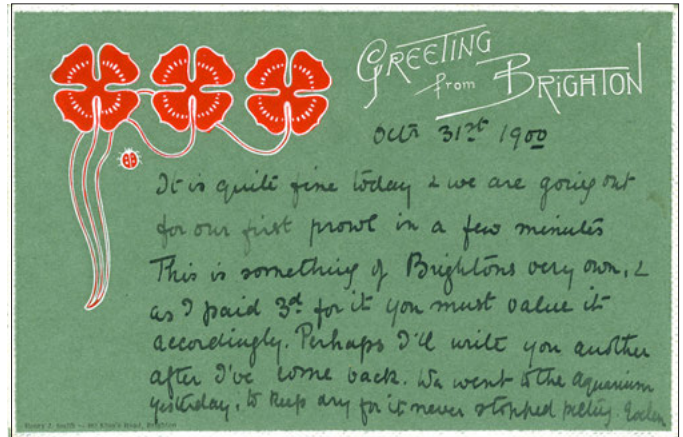 GREETING
from BRIGHTON
Octr 31st 1900
It is quite fine today & we are going out
for our first prowl in a few minutes
This is something of Brightons very own, &
as I paid 3d for it you must value it
accordingly. Perhaps I'll write you another
after I've come back. We went to the Aquarium
yesterday, to keep dry for it never stopped pelting.